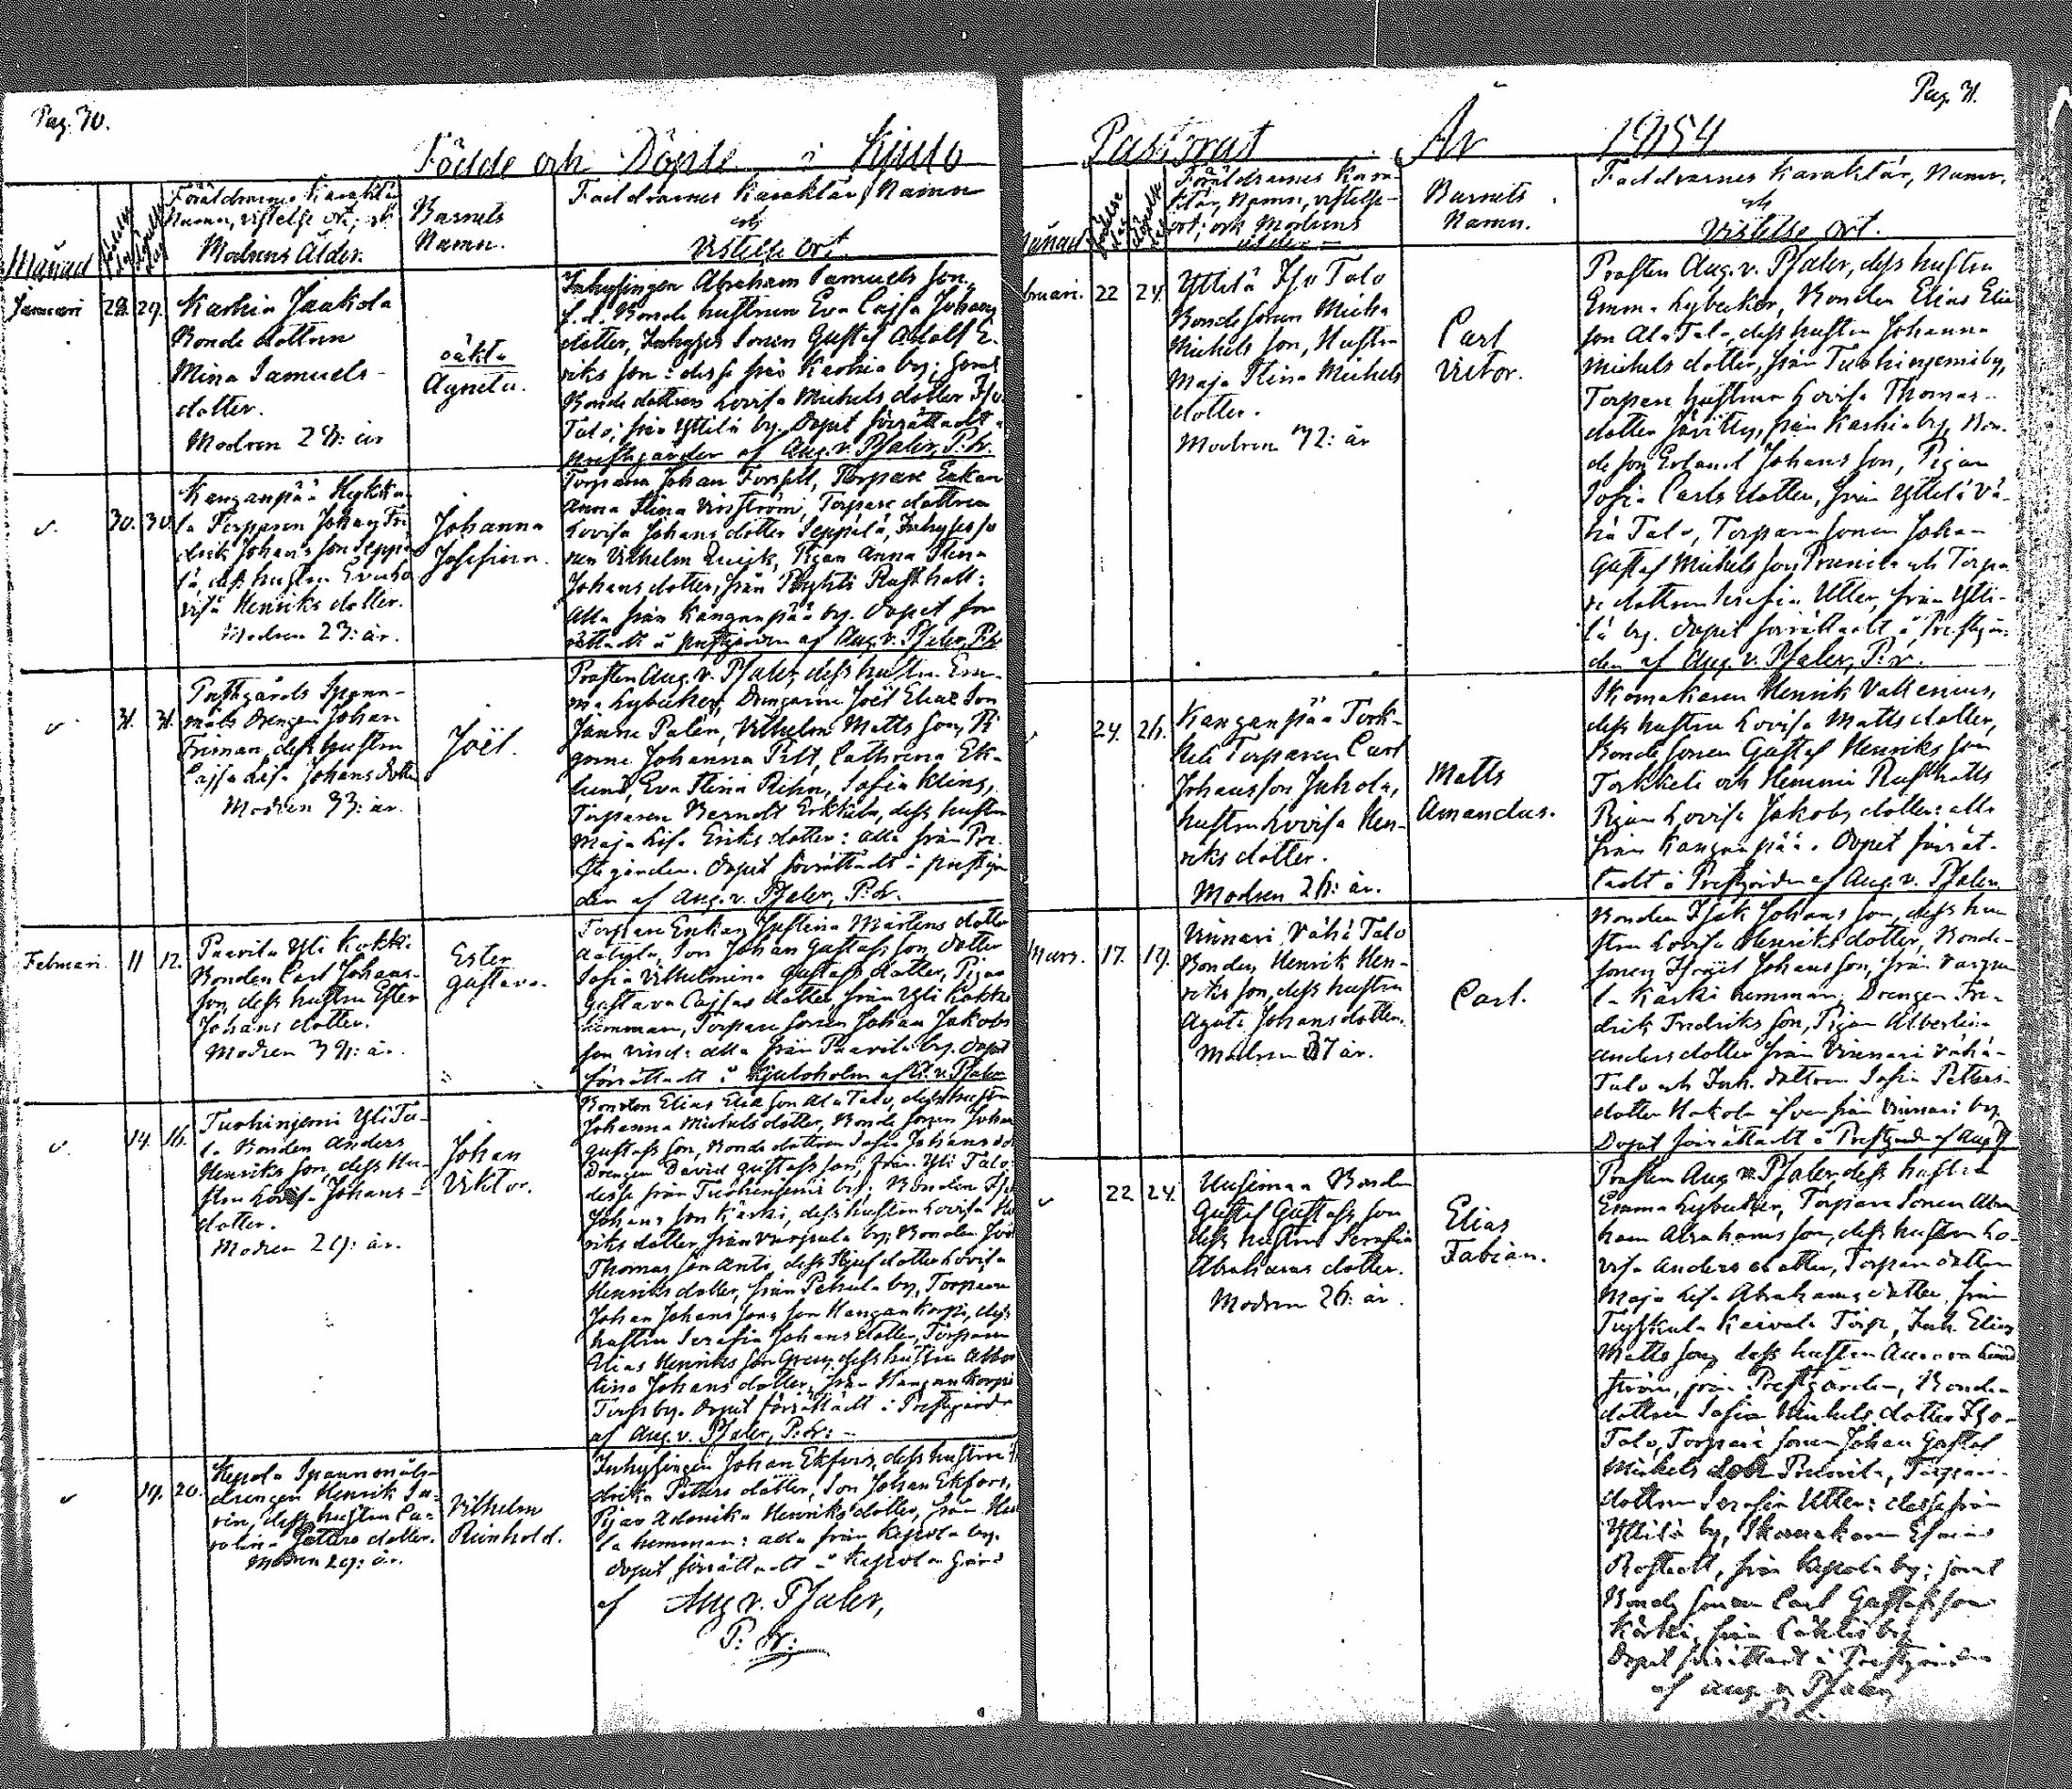 Pag. 30.
Födde och Döpte i Kjulo
Månad
Föräldrarnes Karaktär
Namn, vistelse ort, och
Modrens Ålder.
Barnets
Namn.
Faddrarnes Karaktär, Namn
och
Vistelse Ort.
Januari 28. 29.
Karhia Jaakola
Bonde dottren
Mina Samuels
dotter.
Modren 28: år
oäkta
Agneta.
Inhysingen Abraham Samuels son,
f. d. Bonde hustrun Eva Cajsa Johans
dotter, Inhyses Sonen Gustaf Adolf E-
riks son: dessa från Karhia by; samt
Bonde dottren Lovisa Michels dotter Iso
Talo, från Yttilä by. Dopet förrättadt i
prestgården af Aug. v. Pfaler, P: hr.
30. 30.
Kanganpää
la Torparen Johan Fre
drik Johans son Seppä
lä, dess hustru Eva Lo
visa Henriks dotter.
Modren 23: år.
Johanna
Josefina.
Torparen Johan Forsell, Torpare Enkan
Anna Stina, Torpare dottren
Lovisa Johans dotter Seppälä, Inhyses so
nen Vilhelm Qvick, Pigan Anna Stina
Johans dotter, från Rusthåll:
alla från Kanganpää by. Dopet för
rättadt i prestgården af Aug. v. Pfaler, P: hr
31. 31.
Prestgårds Spann-
måls Drengen Johan
Friman, dess hustru
Cajsa Lisa Johans dotter
Modren 33: år.
Joël.
Prosten Aug. v. Pfaler, dess hustru Em-
ma Lybecker, Drengarne Joël Elias son
Janne Palén, Vilhelm Matts son, Pi
gorne Johanna Pilt, Cathrina Ek-
lund, Eva Stina, Sofia Klins,
Torparen Berndt Erkkilä, dess hustru
Maja Lisa Eriks dotter: alla från Pre
stgården. Dopet förrättadt i prestgår
den af Aug. v. Pfaler, P: hr.
Februari 11 12.
Paavila Yli Kokki
Bonden Carl Johans-
son, dess hustru Ester
Johans dotter.
Modren 39: år.
Ester
Gustava.
Torpare Enkan Justina Mårtens dotter
Son Johan Gustafs son, dotter
Sofia Vilhelmina Gustafs dotter, Pigan
Gustava Cajsas dotter från Yli Kokki
hemman, Torpare Sonen Johan Jakobs
son: alla från Paavila by. Dopet
förrättadt i Kjuloholm af A. v. Pfaler
14. 16.
Tuohiniemi Yli Ta-
lo Bonden Anders
Henriks son, dess Hu-
stru Lovisa Johans-
dotter.
Modren 29: år.
Johan
Viktor.
Bonden Elias Elia son Ala Talo, dess hustru
Johanna Michels dotter, Bonde Sonen Johan
Gustafs son, Bonde dottren Sofia Johans dot
Drengen David Gustafs son, från Yli Talo:
desse från Tuohiniemi by; Bonden Isak
Johans son Kärki, dess hustru Lovisa Hen
riks dotter, från Vurpula by; Bonden
Thomas son Anti, dess Lovisa
Henriks dotter, från by, Torparen
Johan Johans son Hangan Korpi, dess
hustru Serafia Johans dotter, Torparen
Elias Henriks son, dess hustru Alber
tina Johans dotter, från Hangan Korpi
by. Dopet förrättadt i Prestgården
af Aug. v. Pfaler, P: hr: –
19. 20.
Kepola Spannmåls-
drengen Henrik
, dess hustru Ca-
rolina Petters dotter.
Modren 29: år.
Vilhelm
Reinhold.
Inhysingen Johan Ekfors, dess hustru
Petters dotter, Son Johan Ekfors,
Pigan Henriks dotter, från
la hemman: alla från Kepola by.
Dopet förrättadt i Kepola Gård
af Aug. v. Pfaler,
P: hr:
Pag. 31.
Pastorat År 1854
Månad
Föräldrarnes Karak
tär, Namn, vistelse-
ort, och Modrens
ålder –
Barnets
Namn.
Faddrarnes Karaktär, Namn,
och
Vistelse Ort.
bruari. 22 24.
Yttilä Iso Talo
Bonde Sonen Micha
Michels son, Hustru
Maja Stina Michels
dotter.
Modren 32: år
Carl
Victor.
Prosten Aug. v. Pfaler, dess hustru
Emma Lybecker, Bonden Elias Elia
son Ala Talo, dess hustru Johanna
Michels dotter, från Tuohiniemi by,
Torpare hustrun Lovisa Thomas
dotter, från Karhia by, Bon-
de son Erland Johans son, Pigan
Sofia Carls dotter, från Yttilä Vä-
hä Talo, Torpare sonen Johan
Gustaf Michels son Prunila och Torpa
re dottren Serafia Utter, från Ytti-
lä by. Dopet förrättadt i Prestgår-
den af Aug. v. Pfaler, P: r.
24. 26.
Kanganpää Tork-
keli Torparen Carl
Johansson Juhola,
hustru Lovisa Hen-
riks dotter.
Modren 26: år.
Matts
Amandus.
Skomakaren Henrik Vallenius,
dess hustru Lovisa Matts dotter,
Bonde sonen Gustaf Henriks son
Torkkeli och Hemmi Rusthålls
Pigan Lovisa Jakobs dotter: alla
från Kanganpää. Dopet förrät-
tadt i Prestgården af Aug. v. Pfaler
Mars. 17. 19.
Vinnari Vähä Talo
Bonden Henrik Hen-
riks son, dess hustru
Agata Johans dotter.
Modren 37 år.
Carl.
Bonden Isak Johans son, dess hu
stru Lovisa Henriks dotter, Bonde-
sonen Israël Johansson, från
la Kärki hemman; Drengen Fre-
drik Fredriks son, Pigan Albertina
Anders dotter från Vinnari Vähä-
Talo och Inh. dottren Sofia Petters-
dotter Hakola äfven från Vinnari by.
Dopet förrättadt i Prestgården af Aug. v
22 24.
Uusimaa Bonden
Gustaf Gustafs son
dess hustru Serafia
Abrahams dotter.
Modren 26: år.
Elias
Fabian.
Prosten Aug. v. Pfaler, dess hustru
Emma Lybecker, Torpare Sonen Abra
ham Abrahams son, dess hustru Lo-
visa Anders dotter, Torpare dottren
Maja Lisa Abrahams dotter, från
Keivola Torp, Inh. Elias
Matts son, dess hustru
ström, från Prestgården, Bonde
dottren Sofia Michels dotter Iso-
Talo, Torpare sonen Johan Gustaf
Michels son Prunila, Torpare-
dottren Serafia Utter: desse från
Yttilä by, Skomakaren
, från Kepola by; samt
Bonde Sonen Carl Gustafs son
Kärki, från by
Dopet förrättadt i Prestgården
af Aug. v. Pfaler